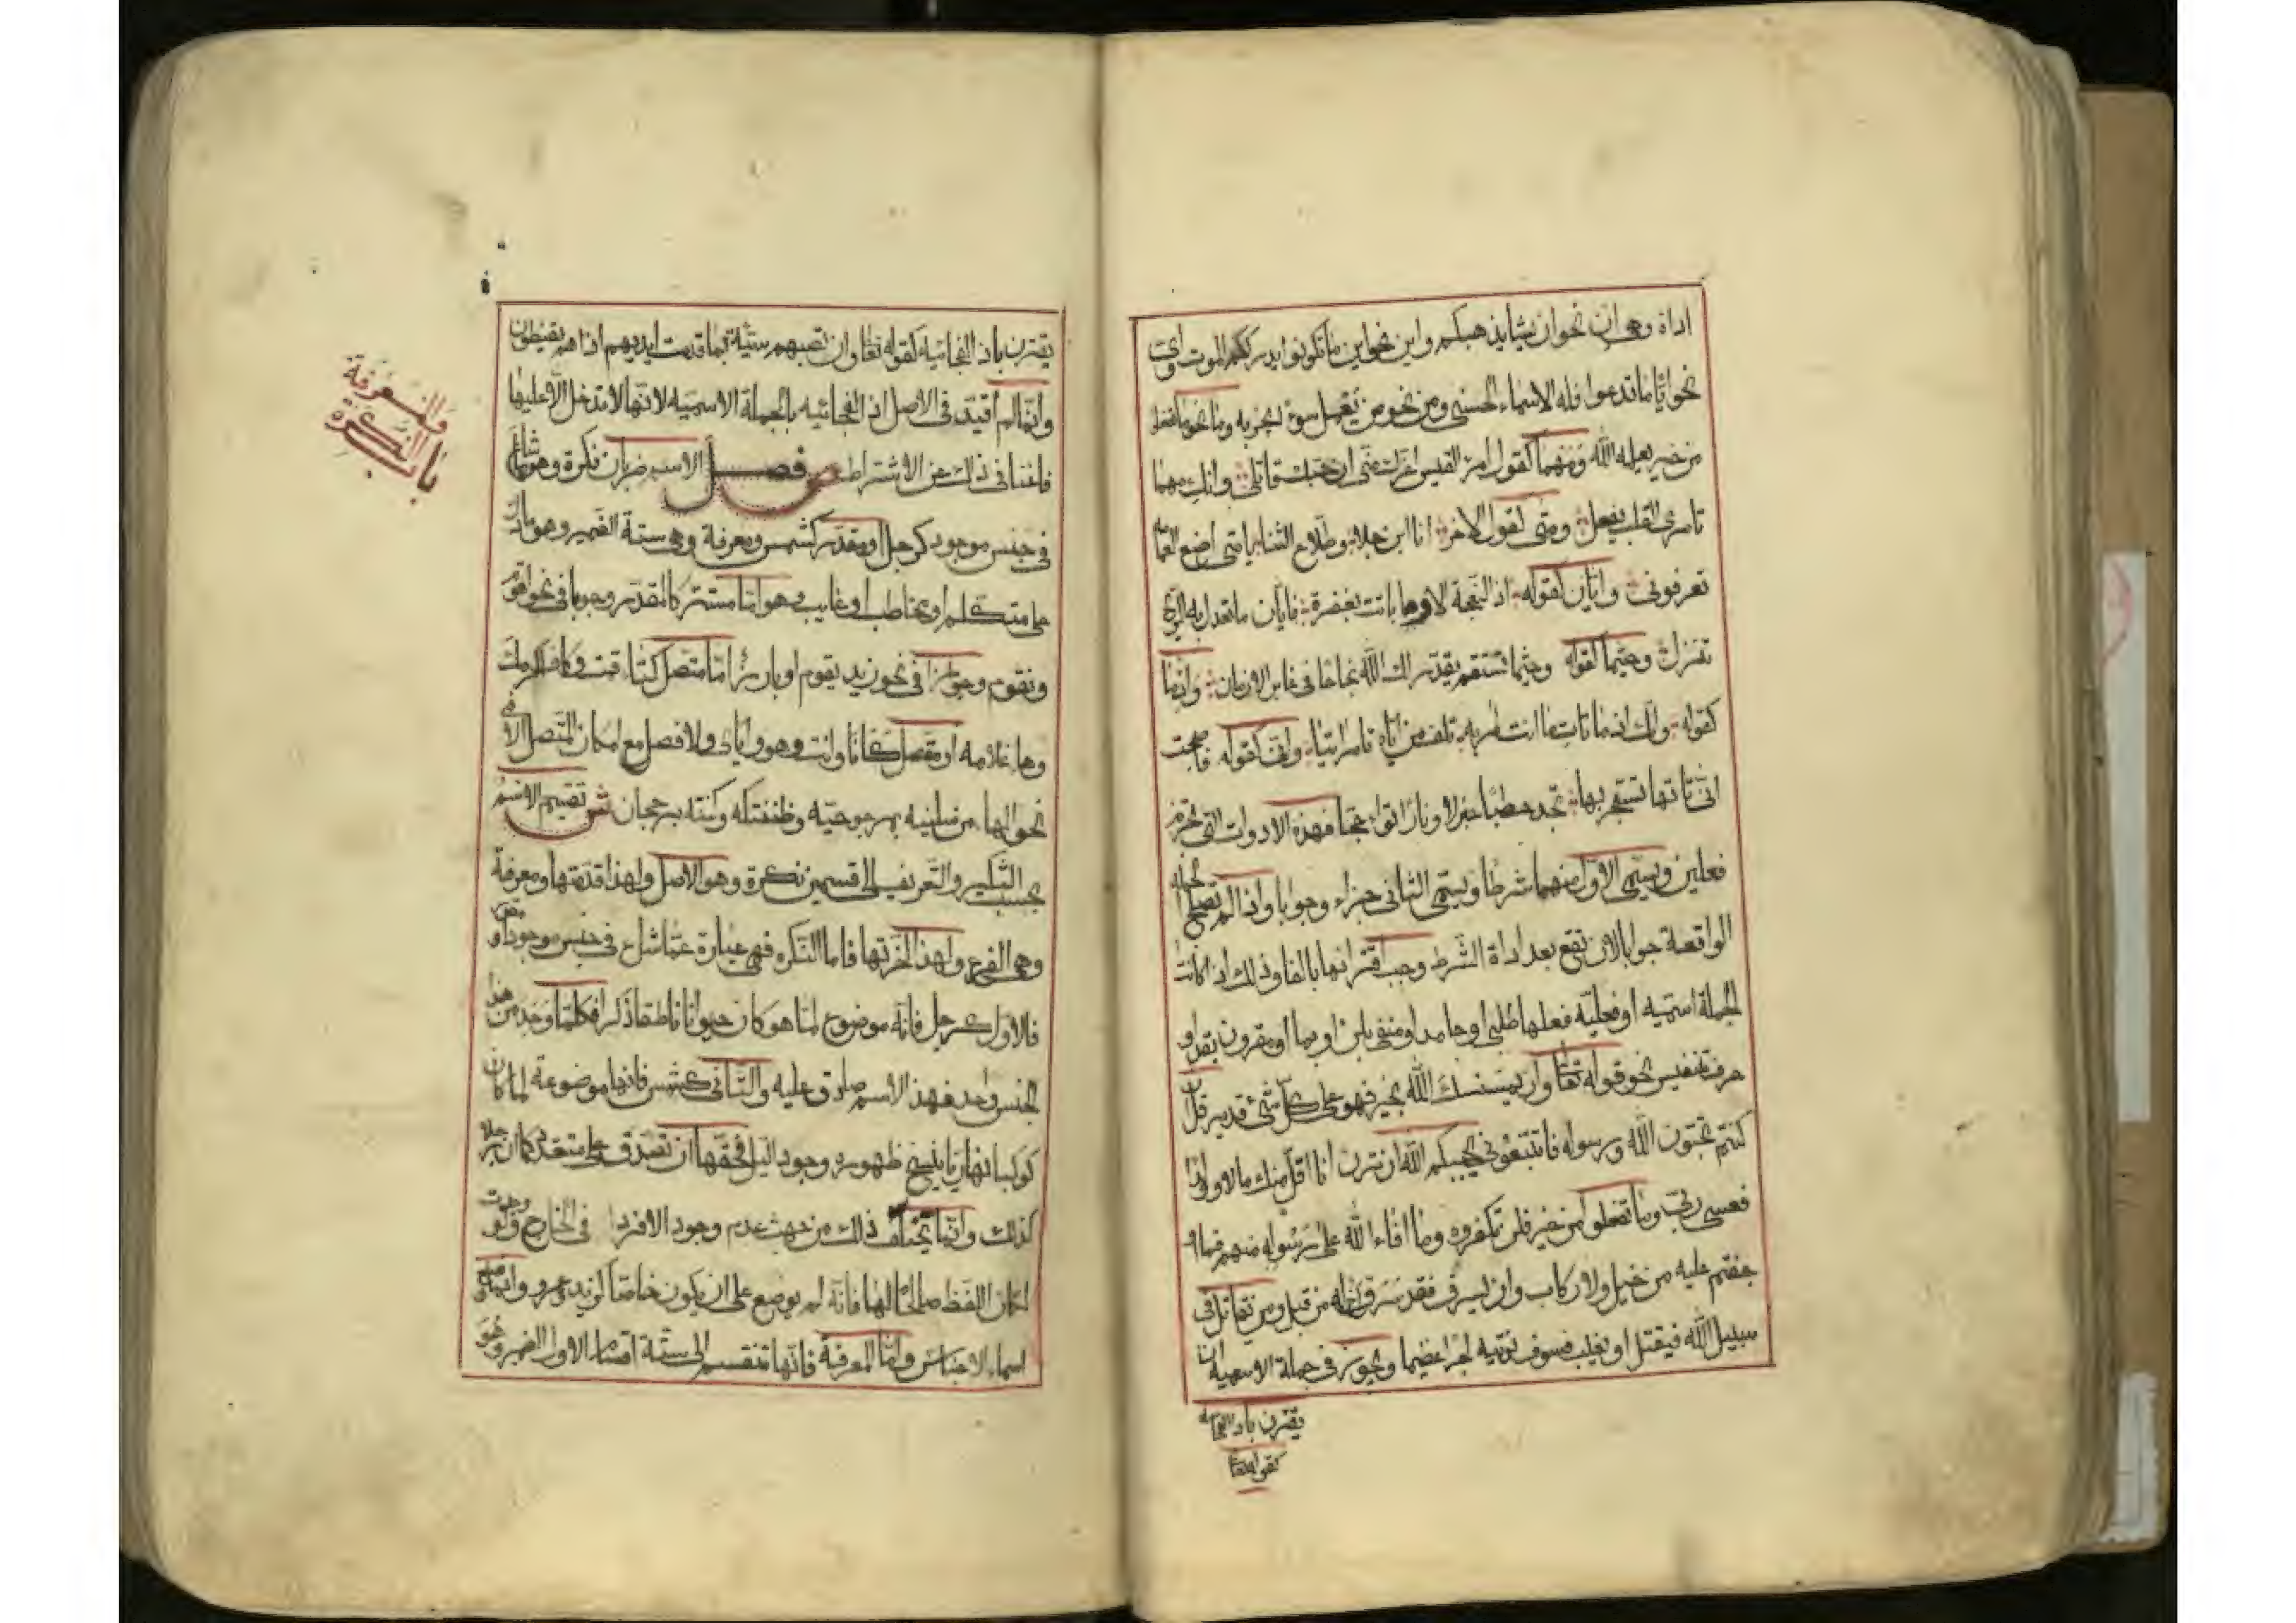 اداة وهي ان نحو ان يشا يذهبكم واين نحو اين ما تكونوا يدرككم الموت واي
نحو ايا ما تدعوا فله الاسماء الحسنى ومن نحو من يعمل سوءا يجز به وما نحو ما تفعلوا
من خير يعلمه الله ومهما كقول امرئ القيس اغرك مني ان حبك قاتلي وانك مهما
تامري القلب يفعل ومتى كقول الاخر انا ابن جلا وطلاع الثنايا متى اضع العمامه
تعرفوني وايان كقوله اذا النعجة الادماء باتت بقفرة فايان ما تعدل به الريح
تنزل وحيثما كقوله وحيثما تستقم يقدر لك الله نجاحا في غابر الازمان واذما
كقوله وانك اذ ما تات ما انت امر به تلف من اياه تامر اتيا وانى كقوله فاصبحت
انى تاتها تستجر بها تجد حطبا جزلا ونارا تاججا فهذه الادوات التي تجزم
فعلين ويسمى الاول منهما شرطا ويسمى الثاني جزاء وجوابا واذا لم تصلح الجمله
الواقعة جوابا لان تقع بعد اداة الشرط وجب اقترانها بالفا وذلك اذا كانت
الجملة اسميه او فعليه فعلها طلبي او جامد او منفي بلن او بما او مقرون بقد او
حرف تنفيس نحو قوله تعا وان يمسسك الله بخير فهو على كل شيء قدير قل ان
كنتم تحبون الله ورسوله فاتبعوني يحببكم الله ان ترن انا اقل منك مالا وولدا
فعسى ربي وما تفعلوا من خير فلن تكفروه وما افاء الله على رسوله منهم فما او
جفتم عليه من خيل ولا ركاب وان يسرق فقد سرق اخ له من قبل ومن يقاتل في
سبيل الله فيقتل او يغلب فسوف نؤتيه اجرا عظيما ويجوز في جملة الاسمية ان
يقترن باذا الفجائيه
كقوله تعا
يقترن باذا الفجائيه كقوله تعا وان تصبهم سيئة بما قدمت ايديهم اذا هم يقنطون
وانما لم اقيد في الاصل اذا الفجائيه بالجملة الاسميه لانها لا تدخل الا عليها
فاغنانا في ذلك عن الاشتراط ص فصل الاسم ضربان نكرة وهو ما شاع
في جنس موجود كرجل او مقدر كشمس ومعرفة وهي ستة الضمير وهو ما دل
على متكلم او مخاطب او غايب وهو اما مستتر كالمقدر وجوبا في نحو اقوم
ونقوم وجوازا في نحو زيد يقوم او بارزا اما متصل كتاء قمت وكاف اكرمك
وهاء غلامه او منفصل كانا وانت وهو واياي ولا فصل مع امكان المتصل الا في
نحو الهاء من سلنيه بمرجوحيه وظننتكه وكنته برجحان ش تقسيم الاسم
بحسب التنكير والتعريف الى قسمين نكرة وهو الاصل ولهذا قدمتها ومعرفة
وهي الفرع ولهذا اخرتها فاما النكره فهي عبارة عما شاع في جنس موجود او مقدر
فالاول كرجل فانه موضوع لما هو كان حيوانا ناطقا ذكرا فكلما وجد من هذا
الجنس واحد فهذا الاسم صادق عليه والثاني كشمس فانها موضوعة لما كان
كوكبا نهاريا ينسخ ظهوره وجود الليل فحقها ان تصدق على متعدد كما ان رجلا
كذلك وانما تخلف ذلك من جهت عدم وجود الافراد في الخارج ولو وجدت
لكان اللفظ صالحا لها فانه لم يوضع على ان يكون خاصا كزيد وعمرو وانما وضع
اسماء الاجناس واما المعرفة فانها تنقسم الى ستة اقسام الاول الضمير وهو
باب النكرة
والمعرفة